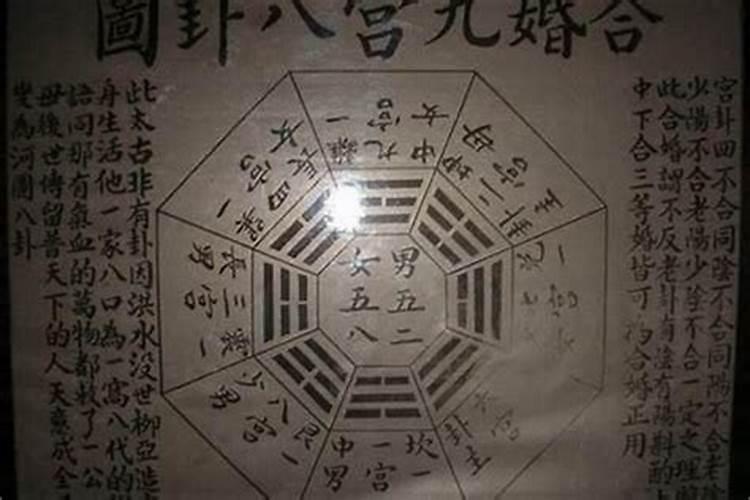 合婚九宫八卦圖
宫卦四不合同陰不合同陽不合老
少陽不合老陽少陰不合一定之理
此合婚謂不反老卦有陰有陽斟酌
中下合三等婚皆可為合婚正用
離一
九宫
中女
坤
二宫
母
卦主
兑一
宫
六宫
卦主
坎一
一宫
中男
艮一
八宫
少男
震一
三宫
長男
巽
四宫
長女
男五二
女五八
此太古非有卦因洪水没世柳亞造
身生活他一家八口為一窩八代的
語同那有氣血的萬物都救了一公
母後世傳留普天下的人天意成全
变為河圖八卦